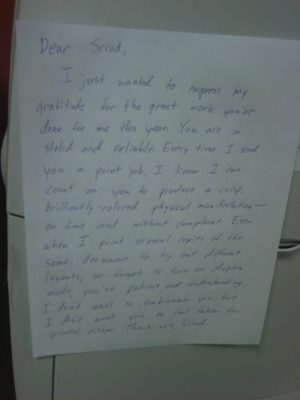 Dear Scrod,
I just wanted to express my
gratitude for the great work you've
done for me this year. You are so
stolid and reliable. Every time I send
you a print job, I know I can
count on you to produce a crisp,
brilliantly-colored physical manifestation—
on time and without complaint. Even
when I print several copies of the
same document to try out different
layouts, or forget to turn on duplex
mode, you're patient and understanding.
I don't want to embarrass you, but
I don't want you to feel taken for
granted, either. Thank you, Scrod.